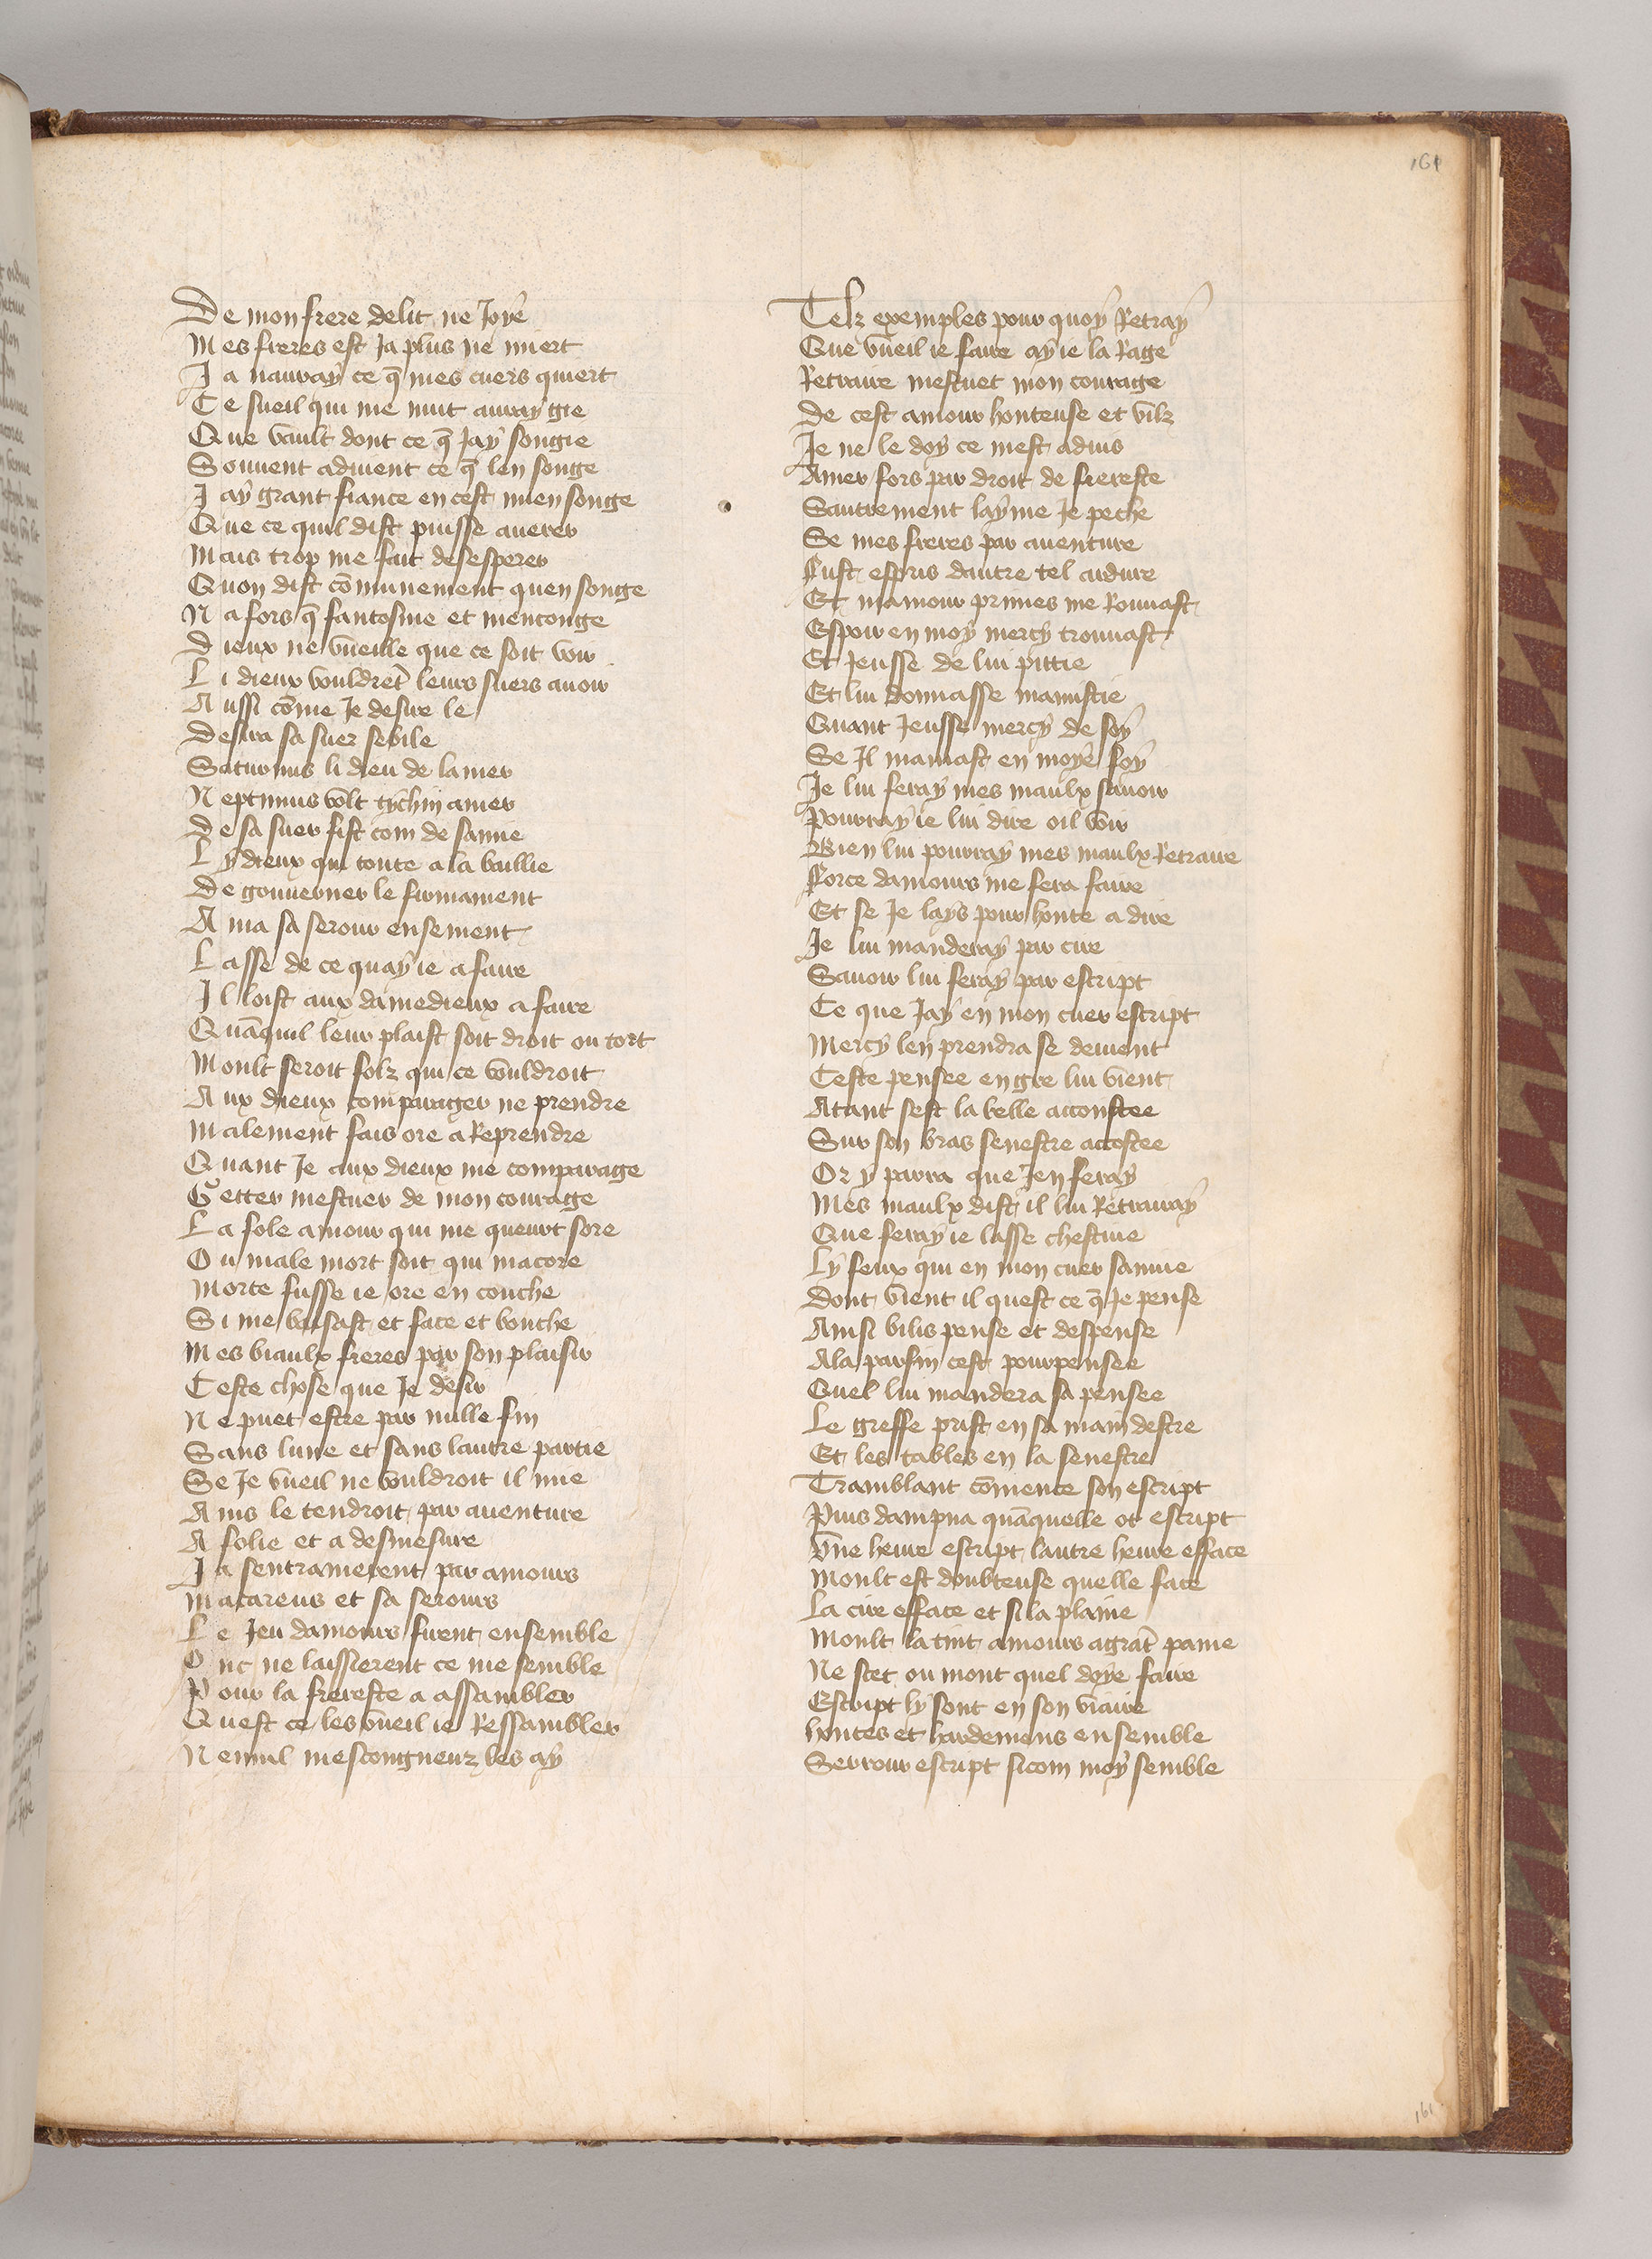 161
De mon frere delit ne Joye
Mes freres est Ja plus ne miert
Ja nauray ce q̄ mes cuers quiert
Ce sueil qui me nuit auray gie
Que vault dont ce q̄ Jay songie
Souuent aduient ce q̄ len songe
Jay grant fiance en cest mien songe
Que ce quil dist puisse auerer
Mais trop me fait desesperer
Quon dist cōmunement quen songe
Na fors q̄ fantosme et menconge
Dieux ne vueille que ce soit voir
Li dieux vouldrēt leurs suers auoir
Aussi cōme Je desire le
Desira sa suer sebile
Saturnus li dieu de la mer
Neptunus volt tychin amer
De sa suer fist com de samie
Ly dieux qui toute a la baillie
De gouuerner le firmament
Ama sa serour ensement
Lasse de ce quay ie a faire
Il loist aux damedieux a faire
Quāquil leur plaist soit droit ou tort
Moult seroit folz qui ce vouldroit
Aux dieux comparager ne prendre
Malement fais ore a Reprendre
Quant Je aux dieux me comparage
Getter mestuer de mon courage
La fole amour qui me queurt sore
Ou male mort soit qui macore
Morte fusse ie ore en couche
Si me baisast et face et bouche
Mes biaulx freres par son plaisir
Ceste chose que Je desir
Ne puet estre par nulle fin
Sans lune et sans lautre partie
Se Je vueil ne vouldroit il mie
Ains le tendroit par auenture
A folie et a desmesure
Ja sentramerent par amours
Macareus et sa serours
Le Jeu damours furent ensemble
Onc ne laissierent ce me semble
Pour la frereste a assambler
Quest ce les vueil ie Ressambler
Nennil mescongneuz les ay
Telz exemples pour quoy Retray
Que vueil ie faire ay ie la Rage
Retraire mestuet mon courage
De cest amour honteuse et vilz
Je ne le doy ce mest aduis
Amer fors par droit de frereste
Sautrement layme Je peche
Se mes freres par auenture
Fust espris dautre tel ardure
Et mamour primes me Rouuast
Espoir en moy mercy trouuast
Et Jeusse de lui pittie
Et lui donnasse mamistie
Quant Jeusse mercy de soy
Se Il mamast en moye foy
Je lui feray mes maulx sauoir
Pourray ie lui dire oil voir
Bien lui pourray mes maulx Retraire
Force damours me fera faire
Et se Je lays pour honte a dire
Je lui manderay par cire
Sauoir lui feray par escript
Ce que Jay en mon cuer escript
Mercy len prendra se deuient
Ceste pensee en gre lui vient
Atant sest la belle acconstee
Sur son bras senestre accostee
Or y parra que Jen feray
Mes maulx dist il lui Retrairay
Que feray ie lasse chestiue
Ly feux qui en mon cuer sauiue
Dont vient il quest ce q̄ Je pense
Ainsi bilis pense et despense
Ala parfin cest pourpensee
Quel lui mandera sa pensee
Le greffe prist en sa main destre
Et les tables en la senestre
Tramblant cōmence son escript
Puis dampna quāquelle ot escript
Vne heure escript lautre heure efface
Moult est doubteuse quelle face
La cire efface et si la plaine
Moult la tint amours agrāt paine
Ne scet ou mont quel doye faire
Escript ly sont en son viaire
hontes et hardemens ensemble
Serrour escript sicom moy semble
161